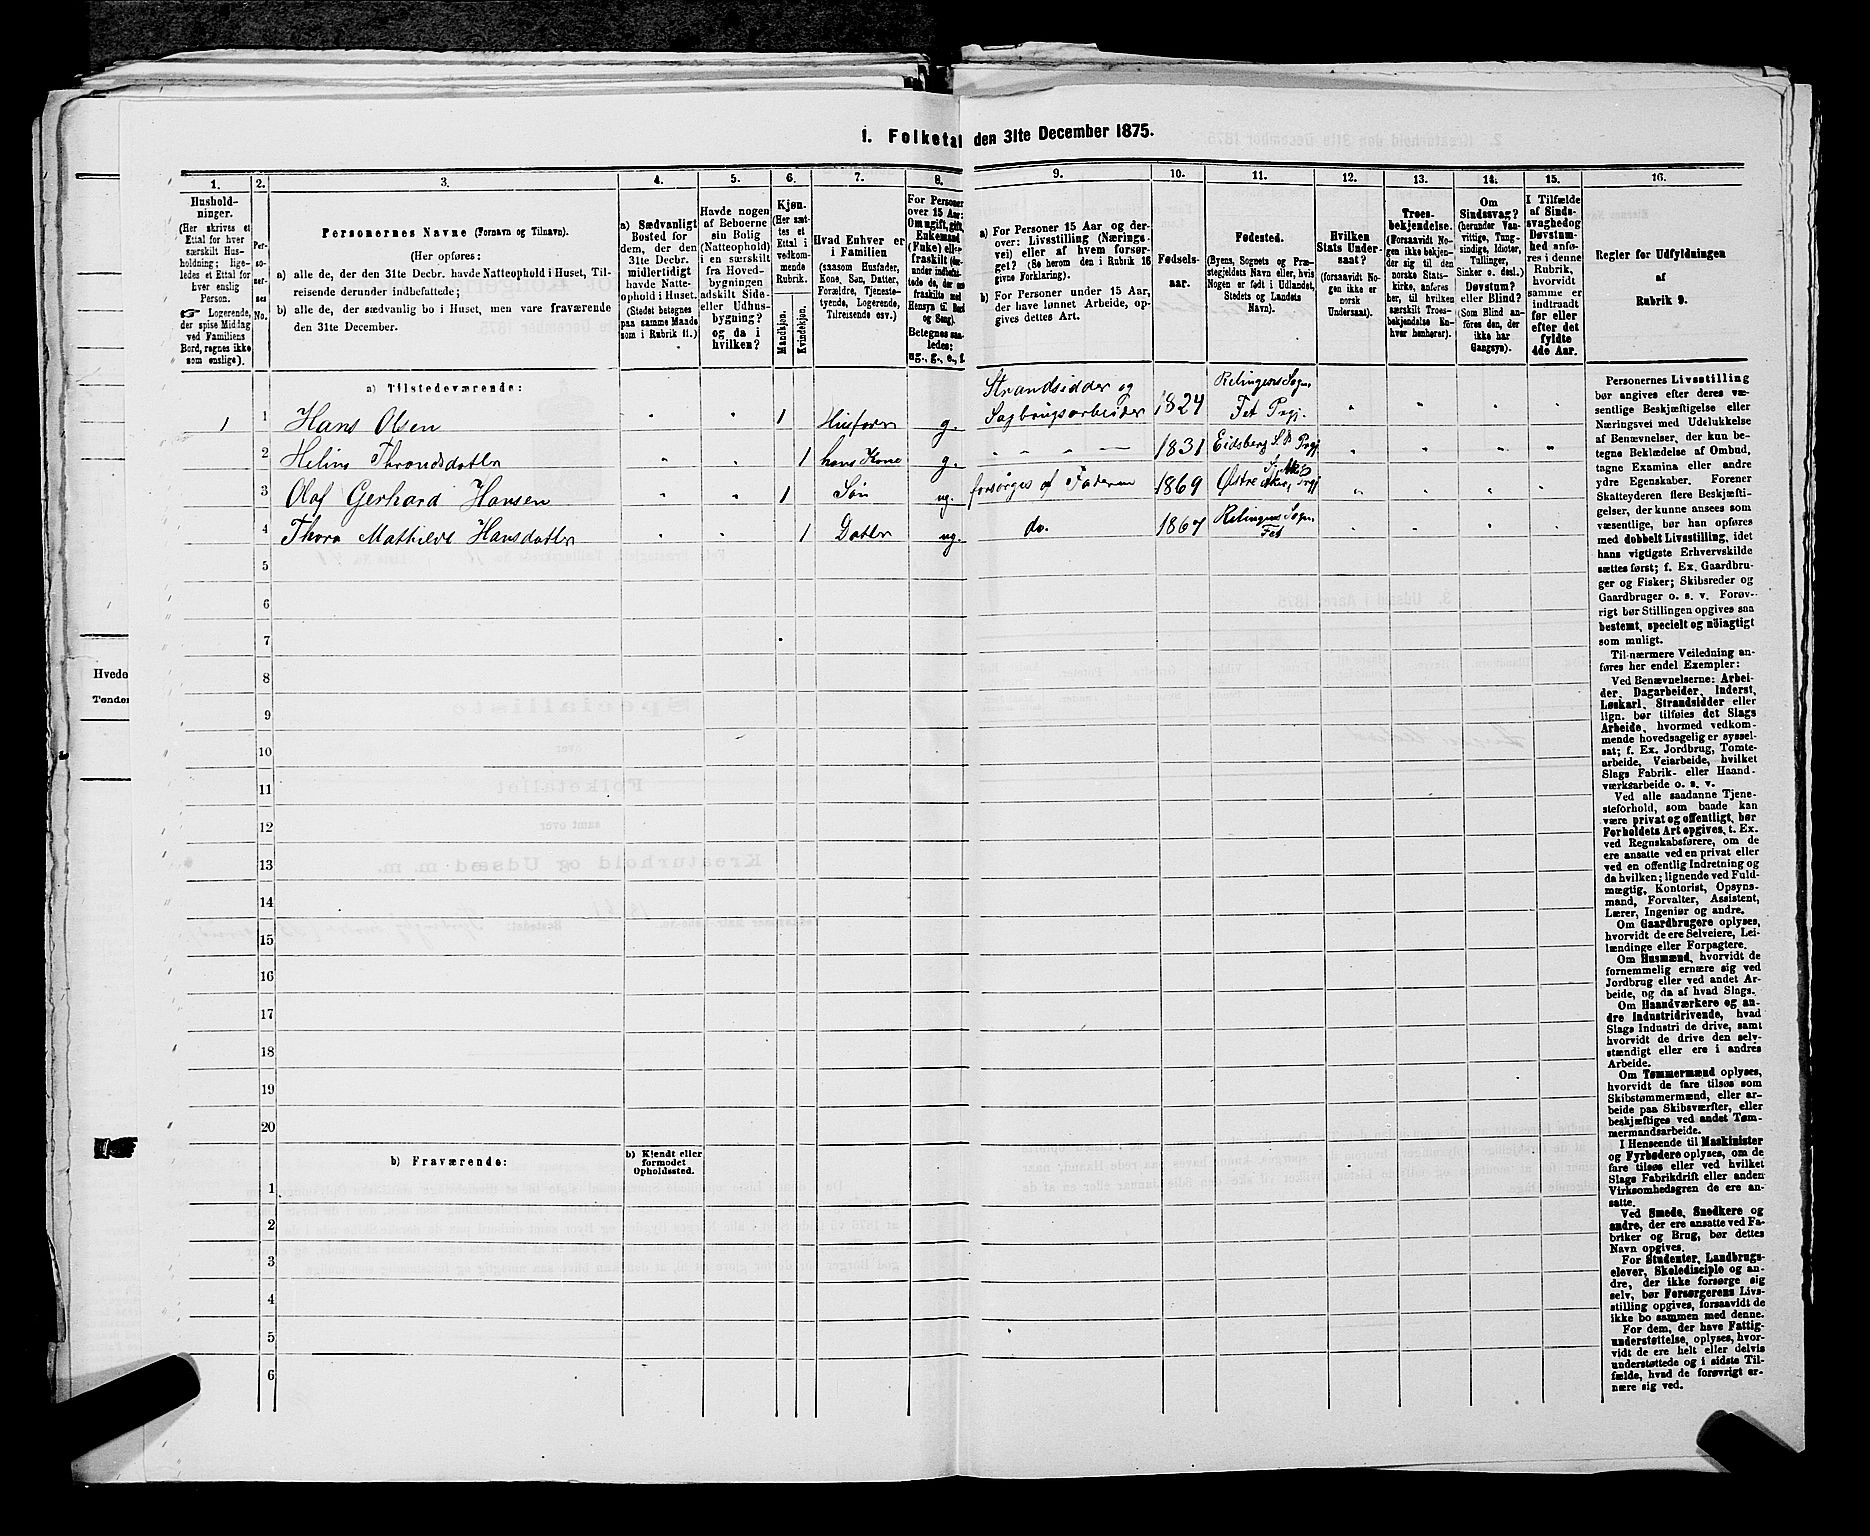 1. Folketal den 31te December 1875.
1. 2. 3. 4. 5. 6. 7. 8. 9. 10. 11. 12. 13. 14. 15. 16.
Hushold-
ninger.
(Her skrives et
Ettal for hver
særskilt Hus-
holdning; lige-
ledes et Ettal for
hver enslig
Person.
☞ Logerende,
der spise Middag
ved Familiens
Bord, regnes ikke
som enslige).
Per-
so-
ner-
nes
No.
Personernes Navne (Fornavn og Tilnavn).
(Her opføres:
a) alle de, der den 31te Decbr. havde Natteophold i Huset, Til-
reisende derunder indbefattede;
b) alle de, der sædvanlig bo i Huset, men vare fraværende
den 31te December.
a) Sædvanligt
Bosted for
dem, der den
31te Decbr.
midlertidigt
havde Natte-
ophold i Huset.
(Stedet betegnes
paa samme Maade
som i Rubrik 11.)
Havde nogen
af Beboerne
sin Bolig
(Natteophold)
i en særskilt
fra Hoved-
bygningen
adskilt Side-
eller Udhus-
bygning?
og da i
hvilken?
Kjøn.
(Her sæt-
tes et
Ettal i
vedkom-
mende
Rubrik.
Mandkjøn.
Kvindekjøn.
Hvad Enhver er
i Familien
(saasom Husfader,
Kone, Søn, Datter,
Forældre, Tjeneste-
tyende, Logerende,
Tilreisende osv.)
For Personer
over 15 Aar:
Om ugift, gift,
Enkemand
(Enke) eller
fraskilt
Betegnes saa-
ledes:
ug., g., e., f.
a) For Personer 15 Aar og der-
over: Livsstilling (Nærings-
vei) eller af hvem forsør-
get? (Se herom den i Rubrik 16
givne Forklaring).
b) For Personer under 15 Aar,
der have lønnet Arbeide, op-
gives dettes Art.
Fødsels-
aar.
Fødested.
(Byens, Sognets og Præ-
stegjeldets Navn eller, hvis
Nogen er født i Udlandet,
Stedets og Landets
Navn).
Hvilken
Stats Under-
saat?
(forsaavidt No-
gen ikke er
norsk
Undersaat).
Troes-
bekjendelse.
(Forsaavidt No-
gen ikke bekjen-
der sig til den
norske Stats-
kirke, anføres
her, til hvilken
særskilt Troes-
bekjendelse En-
hver henhører).
Om
Sindssvag?
(herunder Van-
vittige, Tung-
sindige, Idioter,
Tullinger,
Sinker o. desl.)
Døvstum?
eller Blind?
(Som Blind an-
føres den, der
ikke har
Gangsyn).
I Tilfælde
af Sinds-
svaghed og
Døvstum-
hed anfø-
res i denne
Rubrik,
hvorvidt
samme er
indtraadt
før eller
efter det
fyldte
4de Aar.
Regler for Udfyldningen
af
Rubrik 9.
a) Tilstedeværende:
1 1 Hans Olsen " " 1 Husfader g. Strandsidder og Sagbrugsarbeider 1824 Relingens Sogn, Fet Prgj. " " " "
2 Helina Throndsdatter " " 1 hans Kone g. " " " " 1831 Eidsberg S. & Prgj " " " "
3 Olaf Gerhard Hansen " " 1 Søn ug. forsørges af Faderen 1869 Østre Aker Prgj " " " "
4 Thora Mathilde Hansdatter " " 1 Datter ug. do. 1867 Relingens Sogn, Fet " " " "
5
6
7
8
9
10
11
12
13
14
15
16
17
18
19
20
b) Fraværende:
b) Kjendt eller
formodet
Opholdssted.
1
2
3
4
5
6
Personernes Livsstilling
bør angives efter deres væ-
sentlige Beskjæftigelse eller
Næringsvei med Udelukkelse
af Benævnelser, der kun be-
tegne Beklædelse af Ombud,
tagne Examina eller andre
ydre Egenskaber. Forener
Skatteyderen flere Beskjæfti-
gelser, der kunne ansees som
væsentlige, bør han opføres
med dobbelt Livsstilling, idet
hans vigtigste Erhvervskilde
sættes først; f. Ex. Gaardbru-
ger og Fisker; Skibsreder og
Gaardbruger o. s. v. Forøv-
rigt bør Stillingen opgives saa
bestemt, specielt og nöiagtigt
som muligt.
Til nærmere Veiledning an-
føres her endel Exempler:
Ved Benævnelserne: Arbei-
der, Dagarbeider, Inderst,
Løskarl, Strandsidder eller
lign. bør tilføies det Slags
Arbeide, hvormed vedkom-
mende hovedsagelig er syssel-
sat; f. Ex. Jordbrug, Tomte-
arbeide, Veiarbeide, hvilket
Slags Fabrik- eller Haand-
værksarbeide o. s. v.
Ved alle saadanne Tjene-
steforhold, som baade kan
være privat og offentligt, bør
Forholdets Art opgives, t. Ex.
ved Regnskabsførere, om de
ere ansatte ved en privat eller
ved en offentlig Indretning og
da hvilken; lignende ved Fuld-
mægtig, Kontorist, Opsyns-
mand, Forvalter, Assistent,
Lærer, Ingeniør og andre.
Om Gaardbrugere oplyses,
hvorvidt de ere Selveiere, Lei-
lændinge eller Forpagtere.
Om Husmænd, hvorvidt de
fornemmelig ernære sig ved
Jordbrug eller ved andet Ar-
beide, og da af hvad Slags.
Om Haandværkere og an-
dre Industridrivende, hvad
Slags Industri de drive, samt
hvorvidt de drive den selv-
stændigt eller ere i andres
Arbeide.
Om Tømmermænd oplyses,
hvorvidt de fare tilsøs som
Skibstømmermænd, eller ar-
beide paa Skibsværfter, eller
beskjæftiges ved andet Tøm-
mermandsarbeide.
I Henseende til Maskinister
og Fyrbødere oplyses, om de
fare tilsøs eller ved hvilket
Slags Fabrikdrift eller anden
Virksomhedsgren de ere an-
satte.
Ved Smede, Snedkere og
andre, der ere ansatte ved Fa-
briker og Brug, bør dettes
Navn opgives.
For Studenter, Landbrugs-
elever, Skoledisciple og an-
dre, der ikke forsørge sig
selv, bør Forsørgerens Livs-
stilling opgives, forsaavidt de
ikke bo sammen med denne.
For dem, der have Fattig-
understøttelse, oplyses, hvor-
vidt de ere helt eller delvis
understøttede og i sidste Til-
fælde, hvad de forøvrigt er-
nære sig ved.
Hvede
Tønder